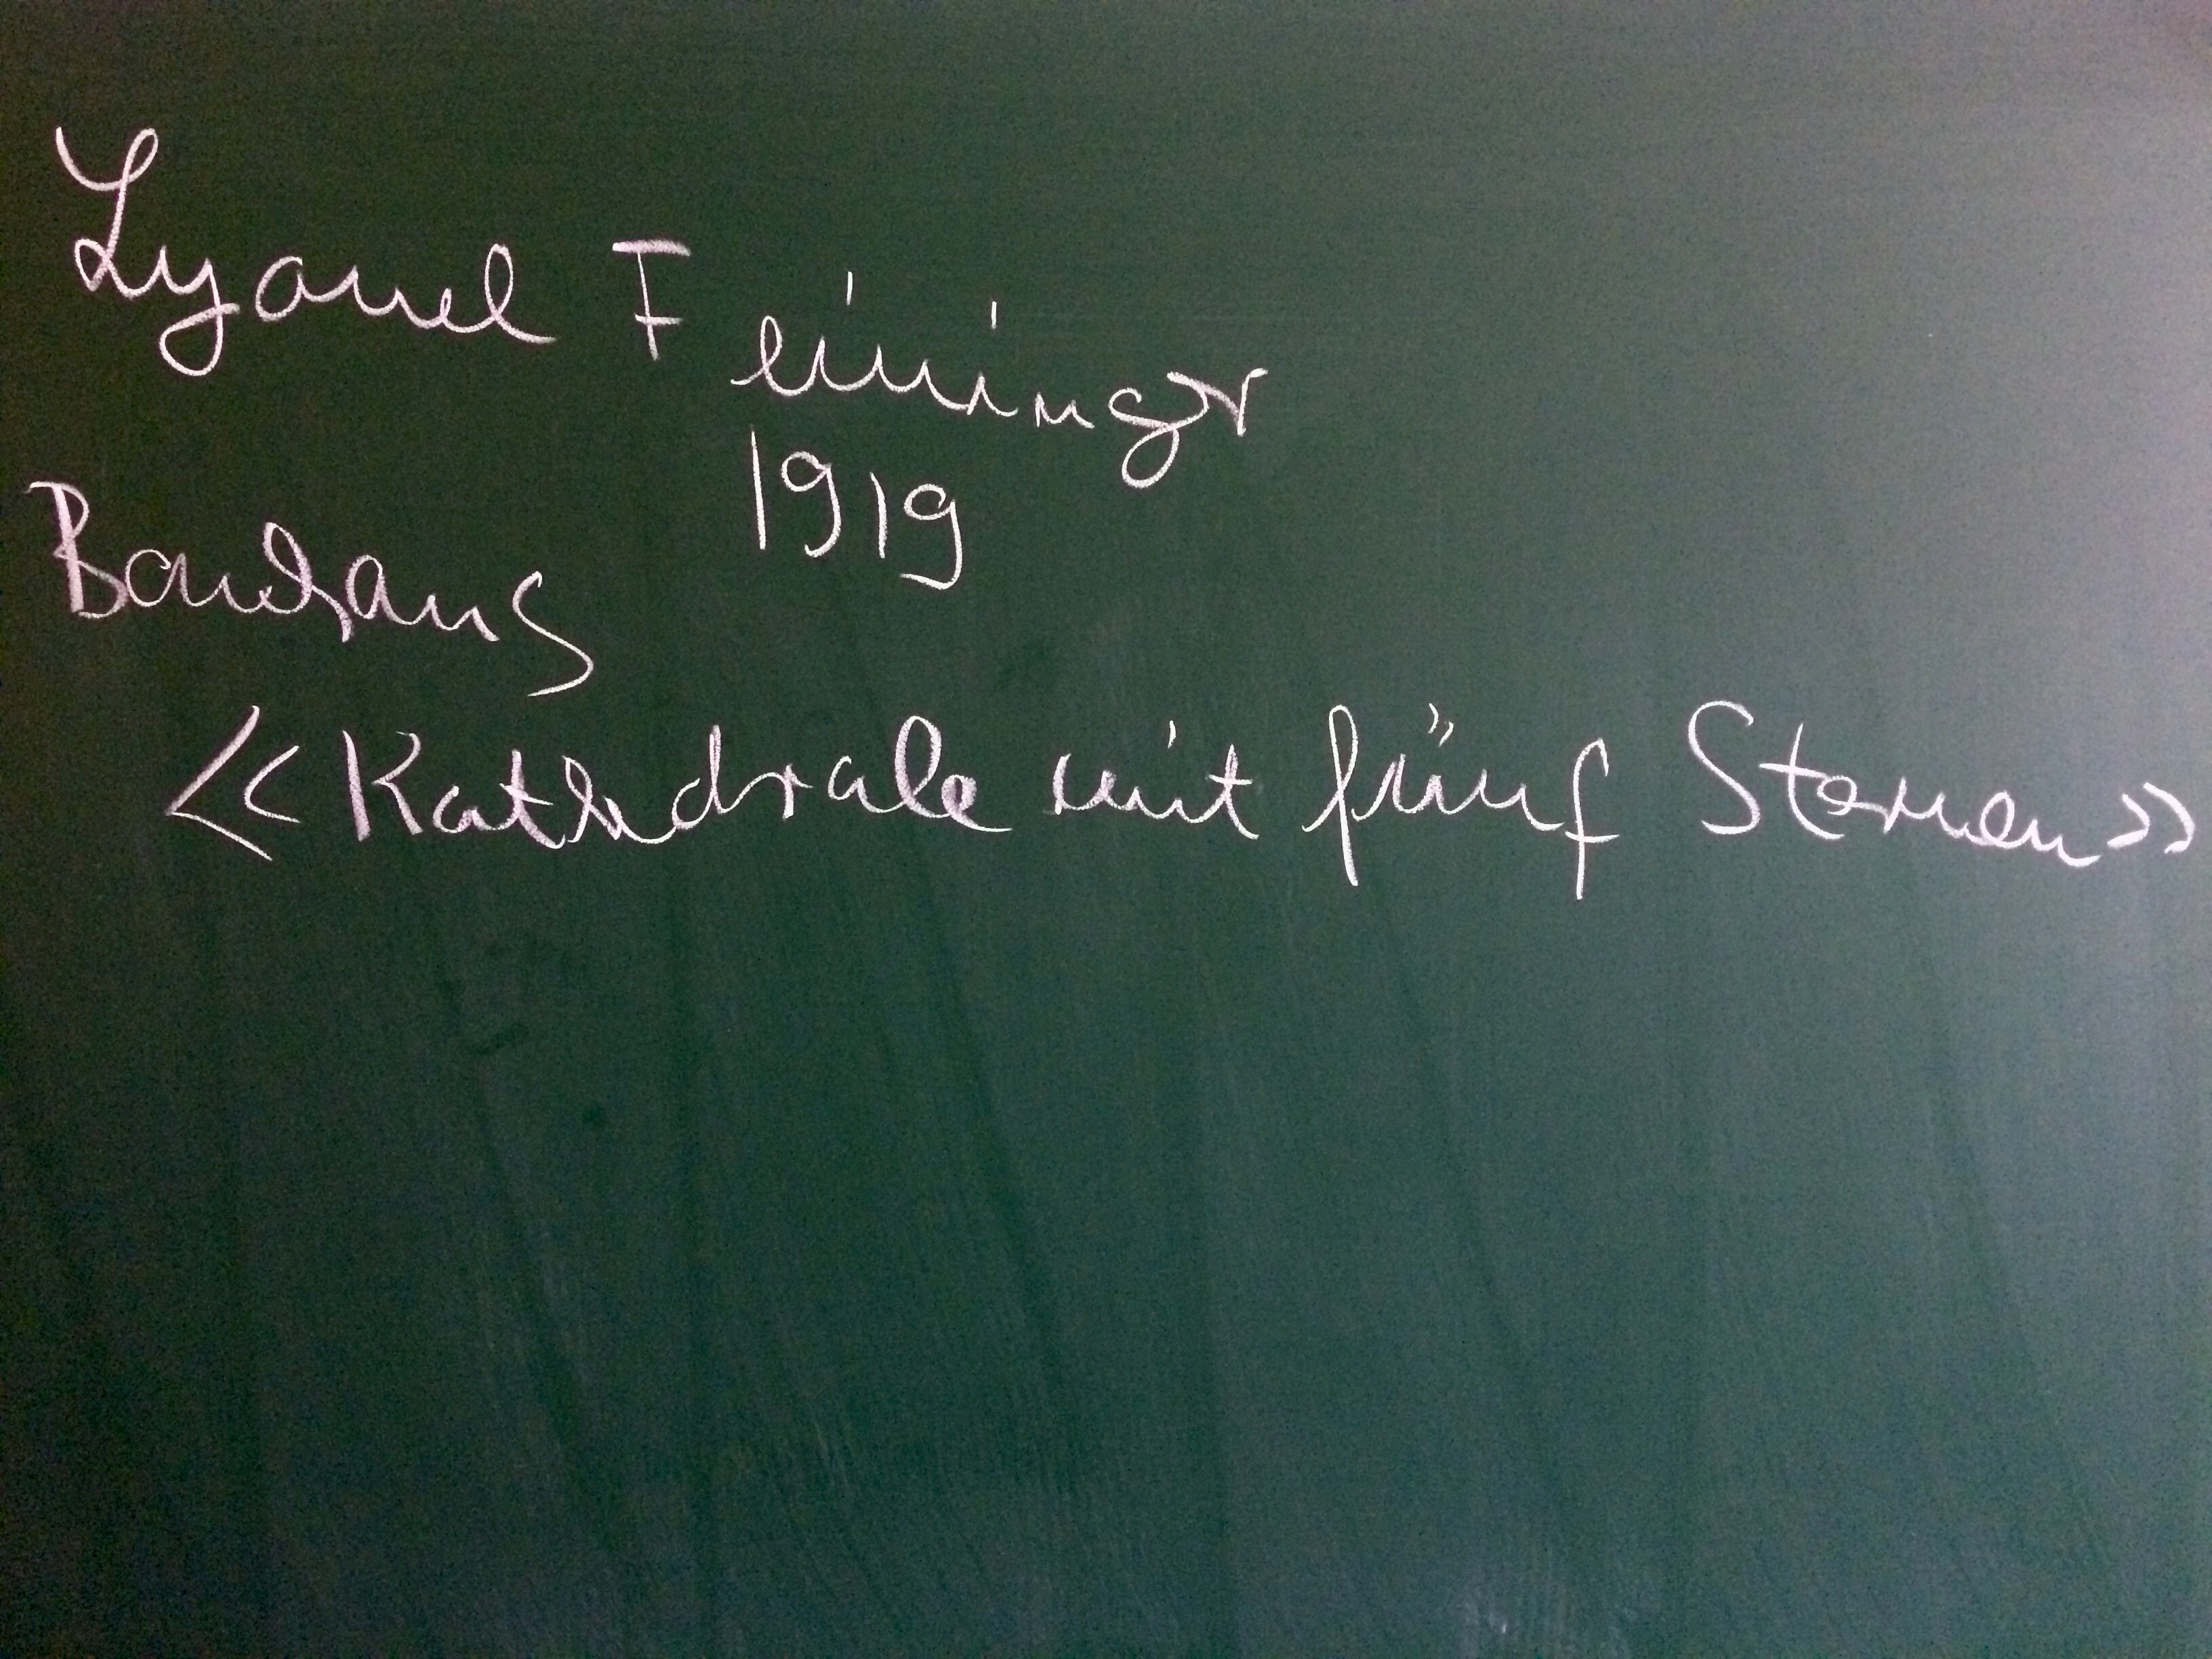 Lyonel Feininger
1919
Bauhaus
<<Kathedrale mit fünf Sternen>>